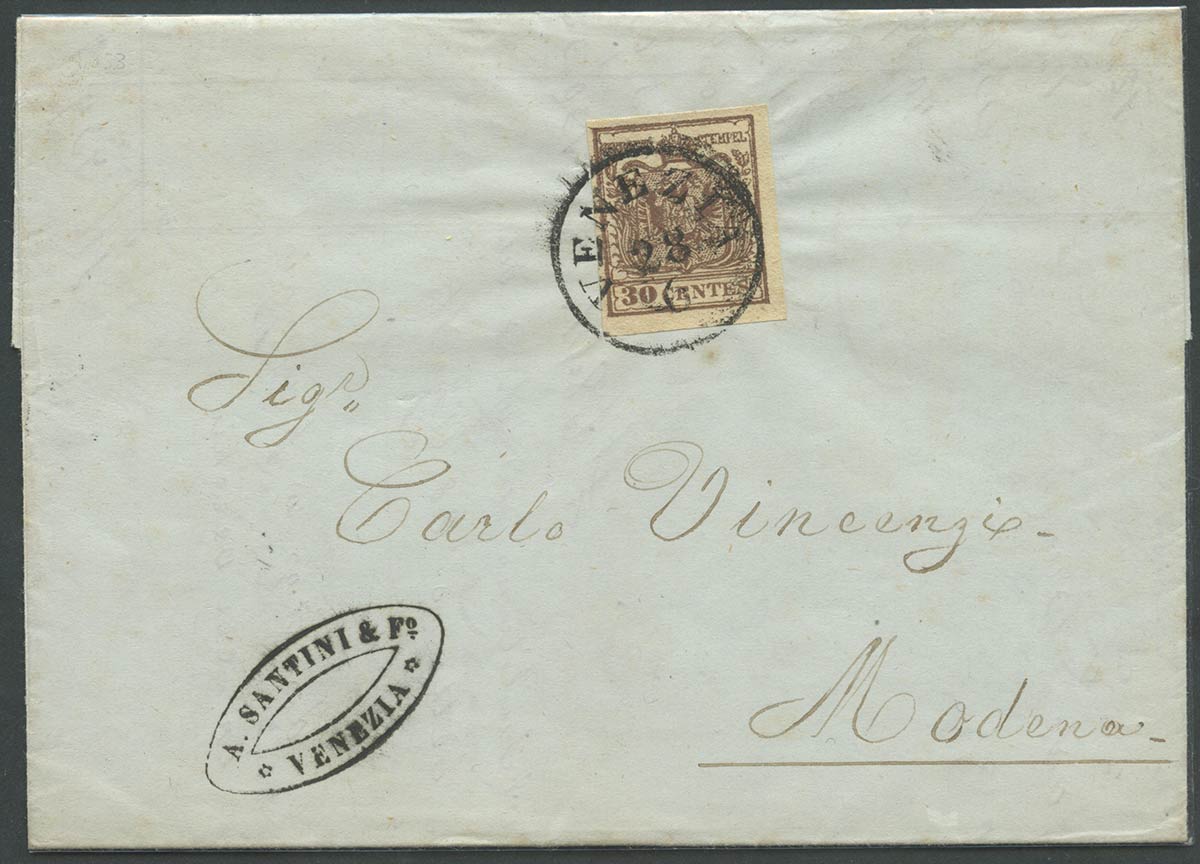 STEMPEL
VENEZIA
28
6
30 CENTES
Sigr
Carlo Vincenzi
Modena
A. SANTINI & Fo
VENEZIA